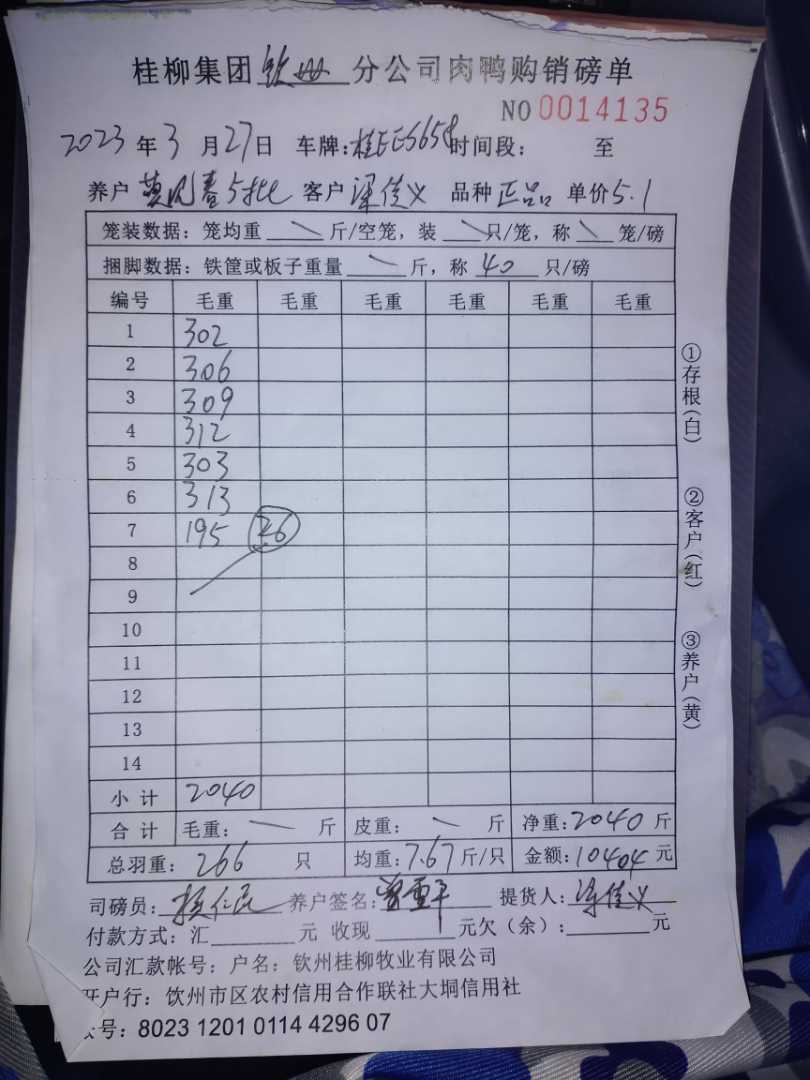 桂柳集团 钦州 分公司肉鸭购销磅单
NO 0014135
2023年3月27日 车牌:桂EE5658 时间段: 至
养户 春5批 客户 梁佳义 品种 正品 单价5.1
笼装数据:笼均重 \ 斤/空笼,装 \ 只/笼,称 \ 笼/磅
捆脚数据:铁筐或板子重量 \ 斤,称 40 只/磅
编号 毛重 毛重 毛重 毛重 毛重 毛重
1 302
2 306
3 309
4 312
5 303
6 313
7 195 26
8
9
10
11
12
13
14
小计 2040
合计 毛重: \ 斤 皮重: \ 斤 净重:2040斤
总羽重:266 只 均重:7.67斤/只 金额:10404元
司磅员: 养户签名: 提货人:梁佳义
付款方式:汇 元 收现 元欠(余): 元
公司汇款帐号:户名:钦州桂柳牧业有限公司
开户行:饮州市区农村信用合作联社大垌信用社
号:8023 1201 0114 4296 07
①存根(白)
②客户(红)
③养户(黄)